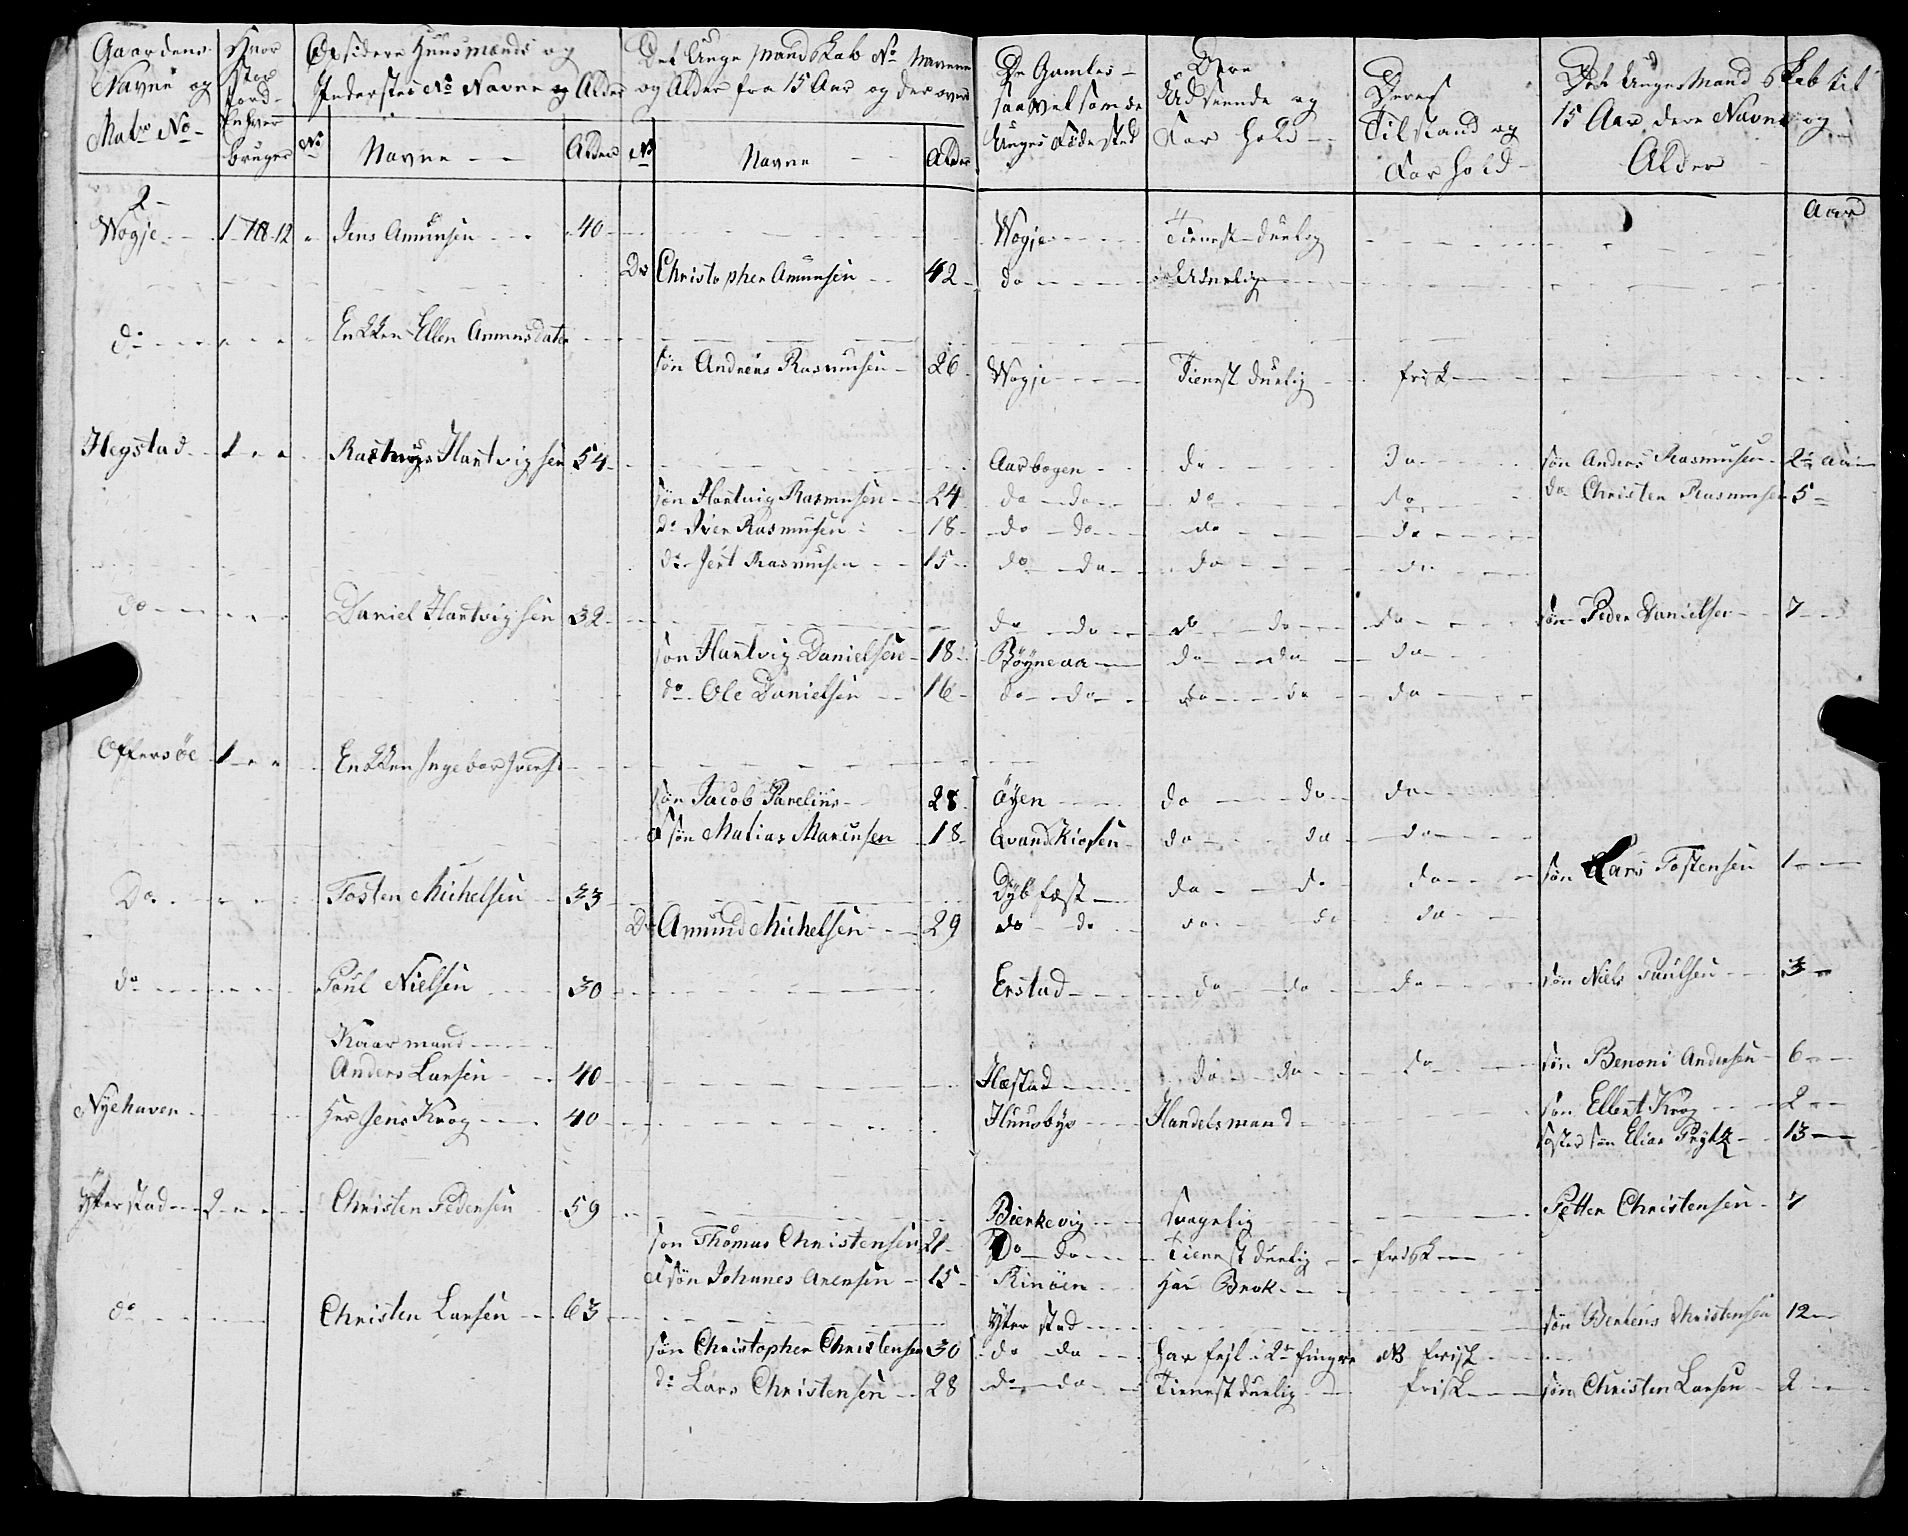 Gaardens Navne og Matr No
Hvor stor Jord Enhver bruger
Opsidere Huusmænds og Inderstes No Navne og Alder
Det Unge Mandskab No Navnene og Alder fra 15 Aar og der over
De Gamles saavelsom de Unges Fødested
Dere Udseende og Forhold
Deres Tilstand og Forhold
Det Unges Mandskab til 15 Aar dere Navne og Alder
No Navne Alder No Navne Alder
Aar
2
Wogje 1 - 18 - 12 Jens Amunsen 40 Wogje Tienest duelig
Do Christopher Amunsen 42 do Uduelig
do Enkken Ellen Amunsdater
søn Andreas Rasmusen 26 Wogje Tienest duelig frisk
Hegstad 1 Rasmus Hartvigsen 54 Aarbogen do do søn Anders Rasmusen 2 Aar
søn Hartvig Rasmusen 24 do do do do do Christen Rasmusen 5
do Iver Rasmusen 18 do do do do
do Jert Rasmusen 15 do do do do
do Daniel Hartvigsen 32 do do do do do søn Peder Danielsen 7
søn Hartvig Danielsen 18 Bøyneaa do do do
do Ole Danielsen 16 do do do do do
Offersøe 1 Enkken Ingebor Ivers
søn Jacob Parelius 28 Øyen do do do
søn Matias Marcusen 18 Qvandkiosen do do do
Do Tosten Michelsen 33 Dybfæst do do do søn Lars Tostensen 1
Do Amund Michelsen 29 do do do do do
do Poul Nielsen 30 Erstad do do do søn Niels Poulsen 3
Kaarmand
Anders Larsen 40 Hæstad do do do søn Benoni Andersen 6
Nyehaven Her Jens Krog 40 Huusbye Handelsmand søn Ellert Krog 2
foster søn Elias Prytz 13
Ytterstad 2 Christen Pedersen 59 Bierkevig Svagelig Petter Christensen 7
søn Thomas Christensen 21 Do do Tienest duelig frisk
søn Johanes Arensen 15 Rinøen Har Brok
do Christen Larsen 63 Ytterstad søn Berteus Christensen 12
søn Christopher Christensen 30 do do har fejl i 2de fingre NB frisk
do Lars Christensen 28 do do Tienest duelig frisk søn Christen Larsen 2